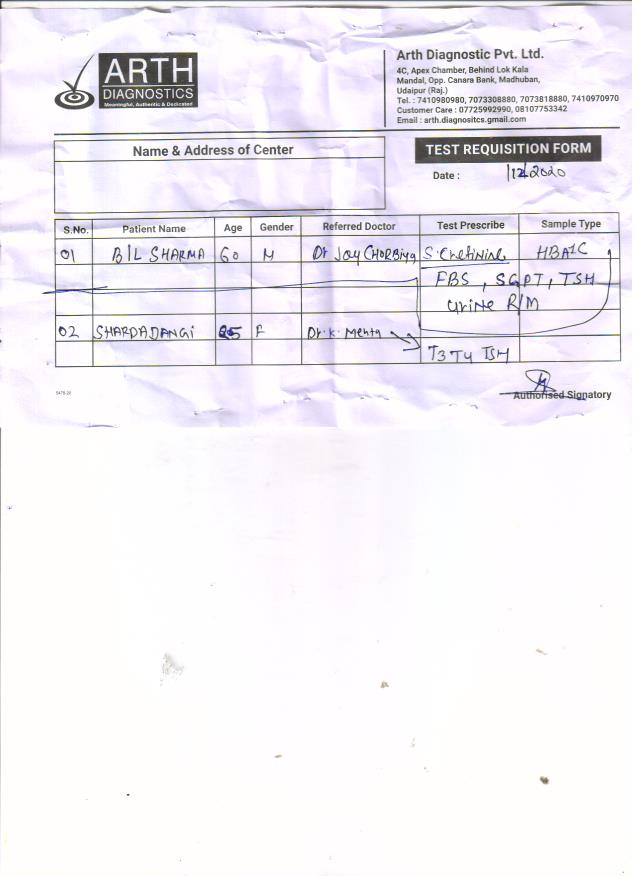 ARTH
DIAGNOSTICS
Meaningful, Authentic & Dedicated
Arth Diagnostic Pvt. Ltd.
4C, Apex Chamber, Behind Lok Kala
Mandal, Opp. Canara Bank, Madhuban,
Udaipur (Raj.)
Tel. : 7410980980, 7073308880, 7073818880, 7410970970
Customer Care : 07725992990, 08107753342
Email : arth.diagnositcs.gmail.com
Name & Address of Center
TEST REQUISITION FORM
Date : 1/12/2020
S.No. Patient Name Age Gender Referred Doctor Test Prescribe Sample Type
01 B/L SHARMA 60 M Dr Jay CHORBIya S. Cretinine HBA1C
FBS , SGPT, TSH
Urine R/M
02 SHARDA DANGI F Dr. K. Mehta
T3 T4 TSH
Authorised Signatory